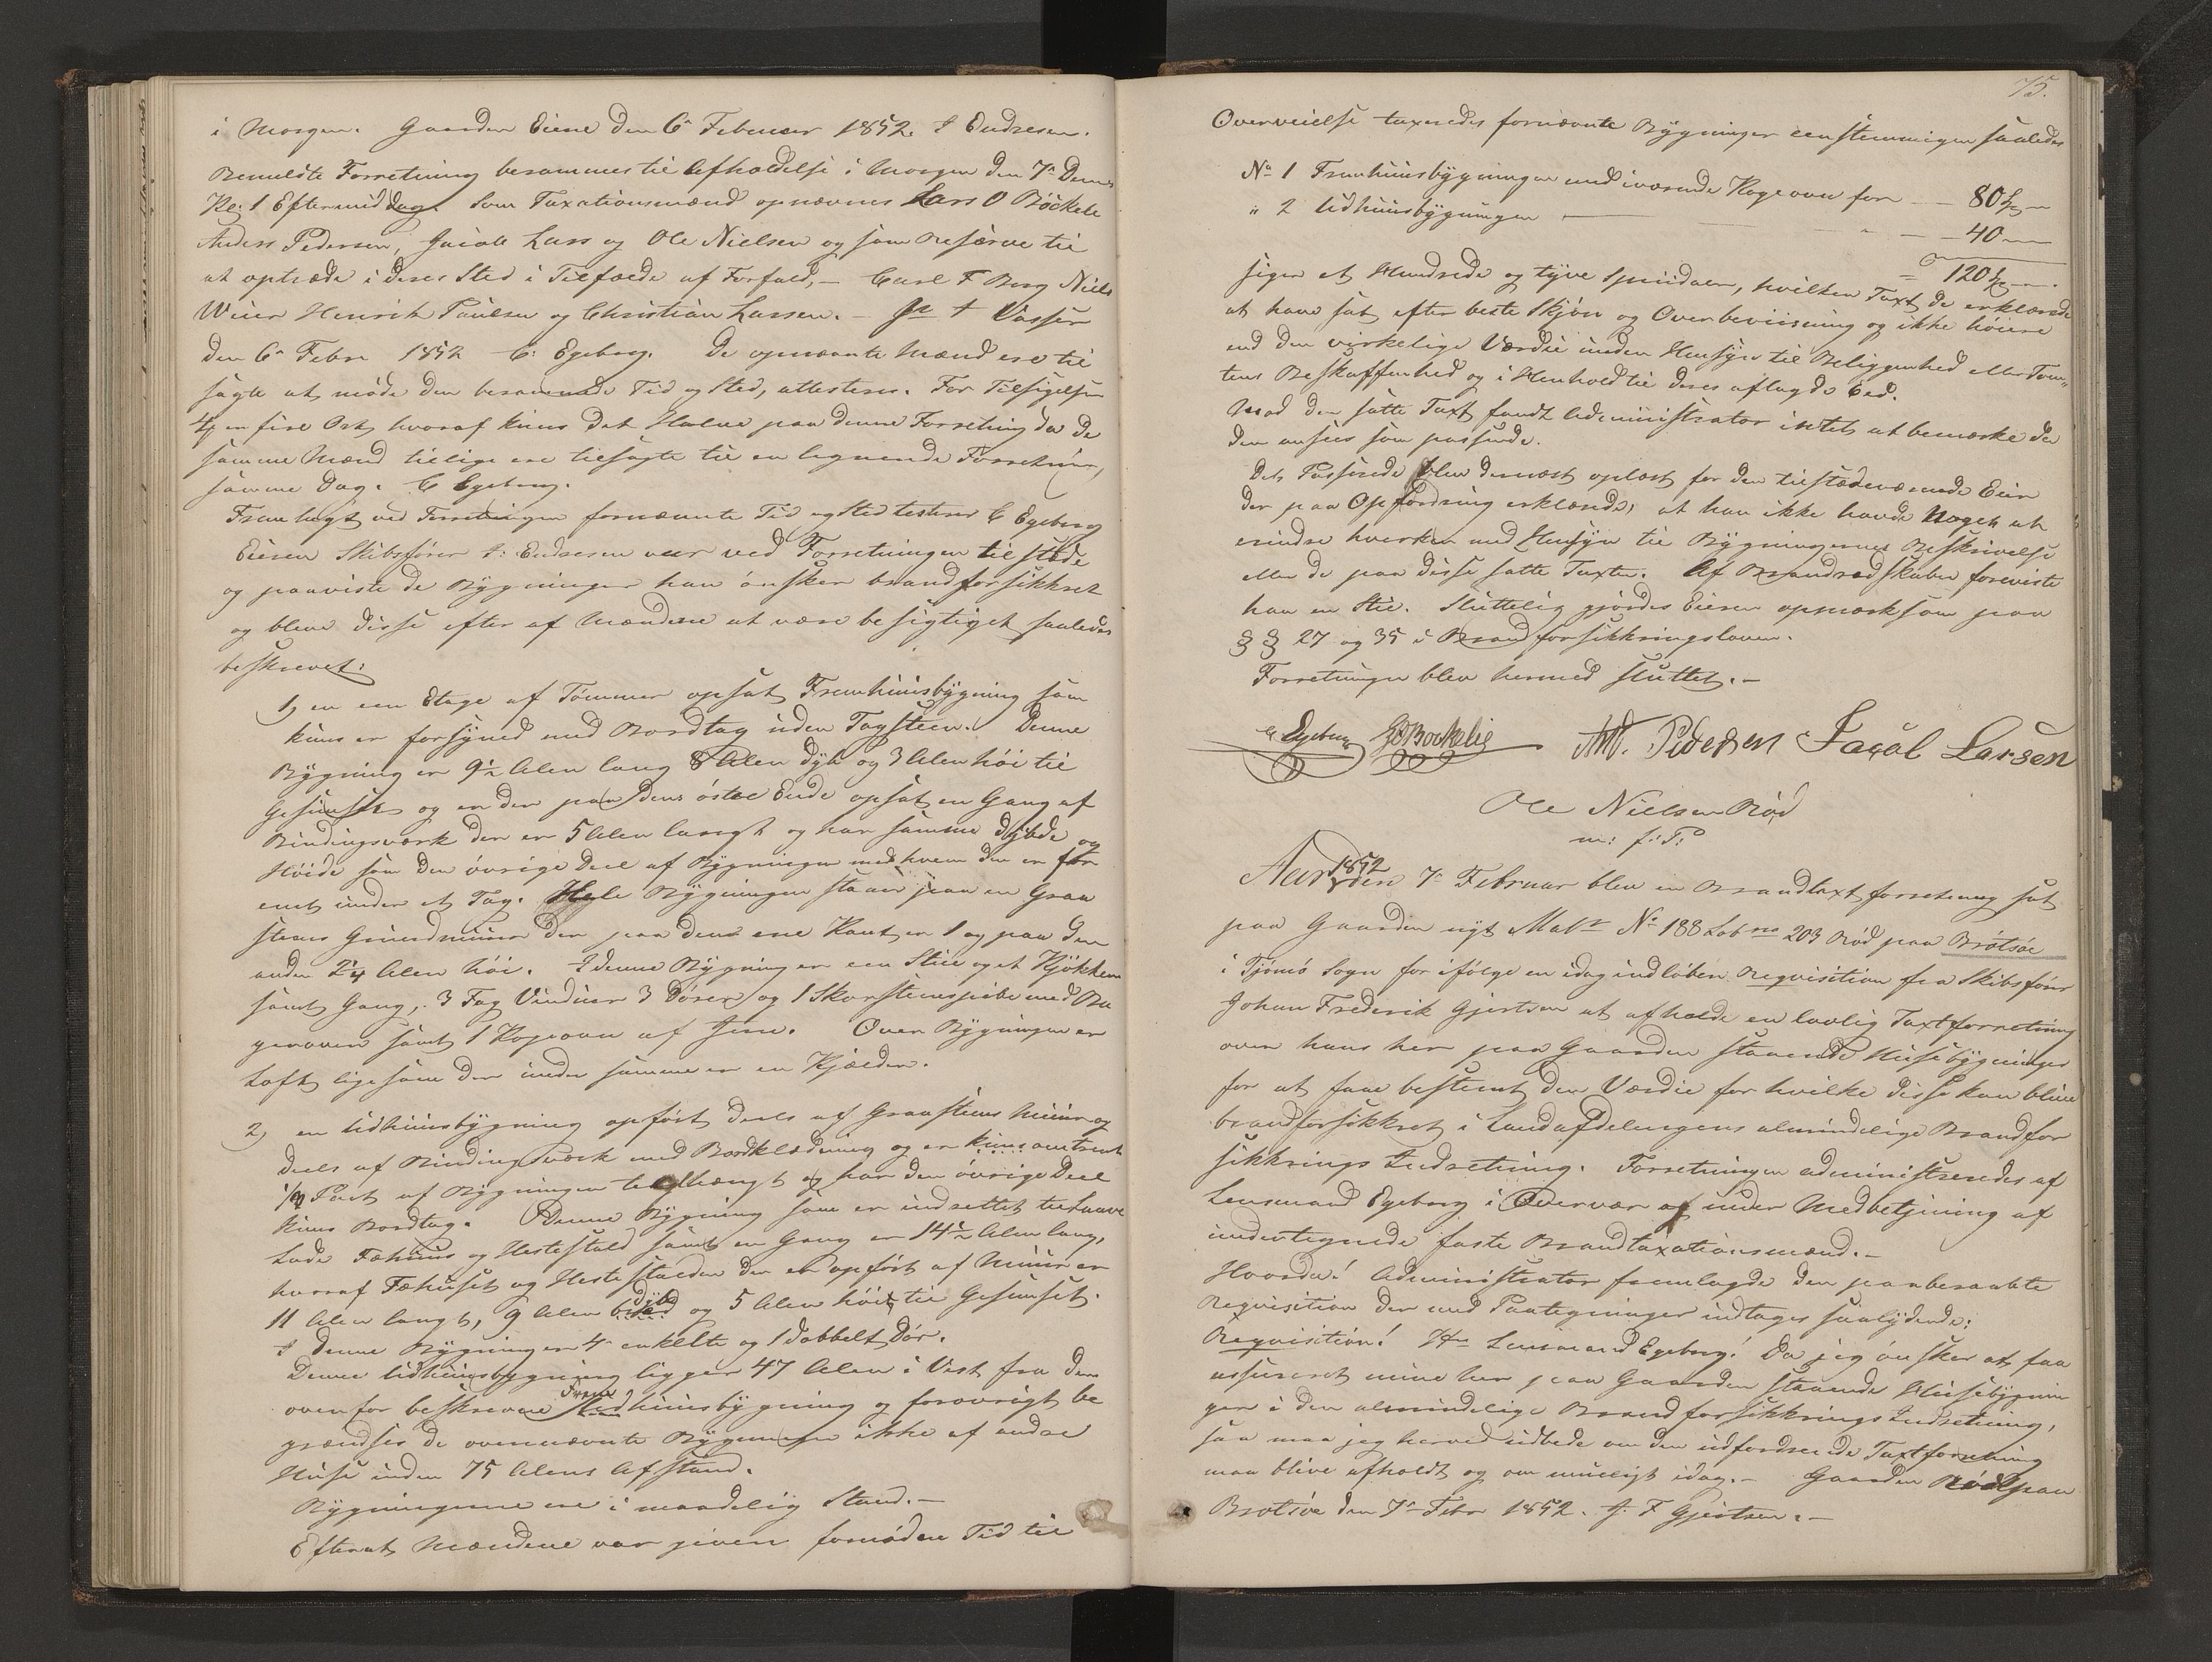 i Morgen. Gaarden Eiene den 6te Februar 1852. I Endresen.
Bemeldte Forretning berammes til Afholdelse i Morgen den 7de Dennes
Kl: 1 Eftermiddag. Som Taxationsmænd opnævnes Lars O Böckele
Anders Pedersen, Jacob Lars og Ole Nielsen og som Reserve til
at optræde i deres Sted i Tilfælde af Forfald, – Carl F Berg Niels
Weier Henrik Paulsen og Christian Larsen. –
den 6te Febr 1852 C: Egeberg. De opnævnte Mænd ere til
sagte at møde den berammede Tid og Sted, attesteres. For Tilsigelsen
4 en fire Ort, hvoraf kuns det Halve paa denne Forretning da de
samme Mænd tillige ere tilsagte til en lignende Forretning,
samme Dag. C Egeberg.
Fremlagt ved Forretningen fornævnte Tid og Sted testerer C Egeberg
Eieren Skibsfører I: Endresen var ved Forretningen tilstæde
og paaviste de Bygninger han ønsker brandforsikkret
og bleve disse efter af Mændene at være besigtiget saaledes
beskrevet:
1) en een Etage af Tømmer opsat Fremhuusbygning som
kuns er forsynet med Bordtag uden Tagsteen. Denne
Bygning er 9½ Alen lang 8 Alen dyb og 3 Alen høi til
Gesimset og er der paa dens østre Ende opsat en Gang af
Bindingsværk der er 5 Alen langt og har samme Dybde og
Høide som den øvrige Deel af Bygningen med hvem den er for
enet under et Tag. Hele Bygningen staaer paa en Graa
steens Grundmuur der paa dens ene Kant er 1 og paa den
anden 2¼ Alen høi. I denne Bygning er een Stue og et Kjøkken
samt Gang, 3 Fag Vinduer 3 Døre og 1 Skorsteenspibe med Ba
gerovn samt 1 Kogeovn af Jern. Over Bygningen er
Loft ligesom der under samme er en Kjælder.
2) en Udhuusbygning opført deels af Graasteens Muur og
deels af Bindingsværk med Bordklædning og er kuns omtrent
Part af Bygningen teglhængt og har den øvrige Deel
kuns Bordtag. Denne Bygning som er indrettet til Laave
Lade Fæhuus og Hestestald samt en Gang er 14½ Alen lang,
hvoraf Fæhuset og Hestestalden der er opført af Muur er
11 Alen langt, 9 Alen dyb og 5 Alen høit til Gesimset.
I denne Bygning er 4 enkelte og 1 dobbelt Dør.
Denne Udhuusbygning ligger 47 Alen i Vest fra den
ovenfor beskrevne Fremhuusbygning og forøvrigt be
grændses de ovennævnte Bygninger ikke af andre
Huse inden 75 Alens Afstand.
Bygningerne ere i maadelig Stand. –
Efterat Mændene var given fornøden Tid til
75.
Overveielse taxeredes fornævnte Bygninger eenstemmigen saaledes
No 1 Fremhuusbygningen med iværende Kogeovn for – 80
" 2 Udhuusbygningen – 40
= 120
siger et Hundrede og tyve Speciedaler, hvilken Taxt de erklærede
at have sat efter beste Skjøn og Overbeviisning og ikke høiere
end den virkelige Værdie uden Hensyn til Beliggenhed eller Tom-
tens Beskaffenhed og i Henhold til deres aflagde Eed.
Mod den satte Taxt fandt Administrator intet at bemærke da
den ansees som passende.
Det Passerede blev dernæst oplæst for den tilstædeværende Eier
der paa Opfordring erklærede, at han ikke havde Noget at
erindre hverken med Hensyn til Bygningernes Beskrivelse
eller de paa disse satte Taxter. Af Brandredskaber foreviste
han en Stie. Sluttelig gjordes Eieren opmærksom paa
§ § 27 og 35 i Brandforsikkringsloven.
Forretningen blev hermed sluttet. –
C Egeberg LOBockelie And. Pedersen Jacob Larsen
Ole Nielsen Rød
m: f: P:
Aar 1852 den 7de Februar blev en Brandtaxtforretning sat
paa Gaarden nyt Matr No 188 Løbno 203 Rød paa Brøtsøe
i Tjømø Sogn for ifølge en idag indløben Reqvisition fra Skibsfører
Johan Frederik Gjertsen at afholde en lovlig Taxtforretning
over hans her paa Gaarden staaende Huusebygninger
for at faae bestemt den Værdie for hvilke disse kan blive
brandforsikkret i Landafdelingens almindelige Brandfor
sikkrings Indretning. Forretningen administreredes af
Lensmand Egeberg i Overvær af under Medbetjening af
undertegnede faste Brandtaxationsmænd. –
Hvorda! Administrator fremlagde den paaberaabte
Reqvisition der med Paategninger indtages saalydende:
Reqvisition! Hr Lensmand Egeberg! Da jeg ønsker at faa
assureret mine her paa Gaarden staaende Huusebygnin
ger i den almindelige Brandforsikkrings Indretning,
saa maa jeg herved udbede om den udfordrende Taxtforretning
maa blive afholdt og om mueligt idag. – Gaarden Rød paa
Brøtsøe den 7de Febr 1852. J. F Gjertsen. –